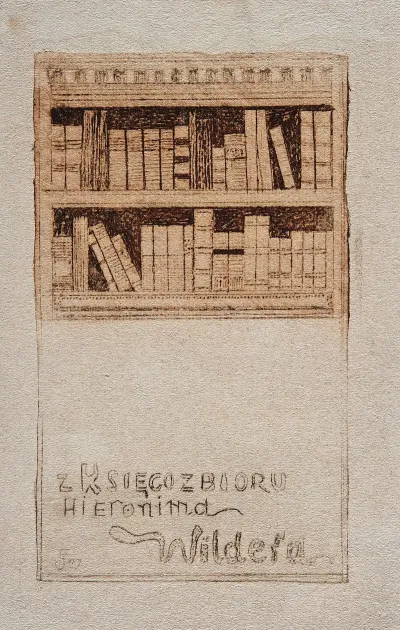 Z KSIĘGOZBIORU
HIEronima
Wildera